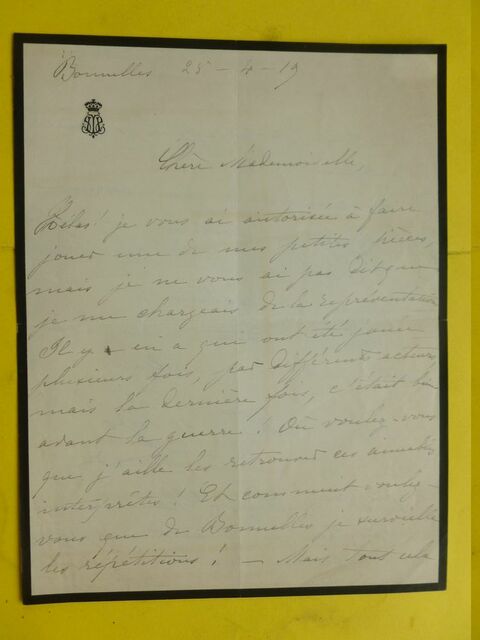 Bonnelles 25 - 4 - 19
Chère Mademoiselle,
Hélas! je vous ai autorisée à faire
jouer une de mes petites pièces,
mais je ne vous ai pas dit que
je me chargeais de la représentation
Il y en a que ont été jouées
plusieurs fois, par différents acteurs,
mais la dernière fois, c'était bien
avant la guerre! Où voulez-vous
que j'aille les retrouver ces aimables
interprètes! Et comment voulez-
vous que de Bonnelles je surveille
les répétitions! — Mais tout cela